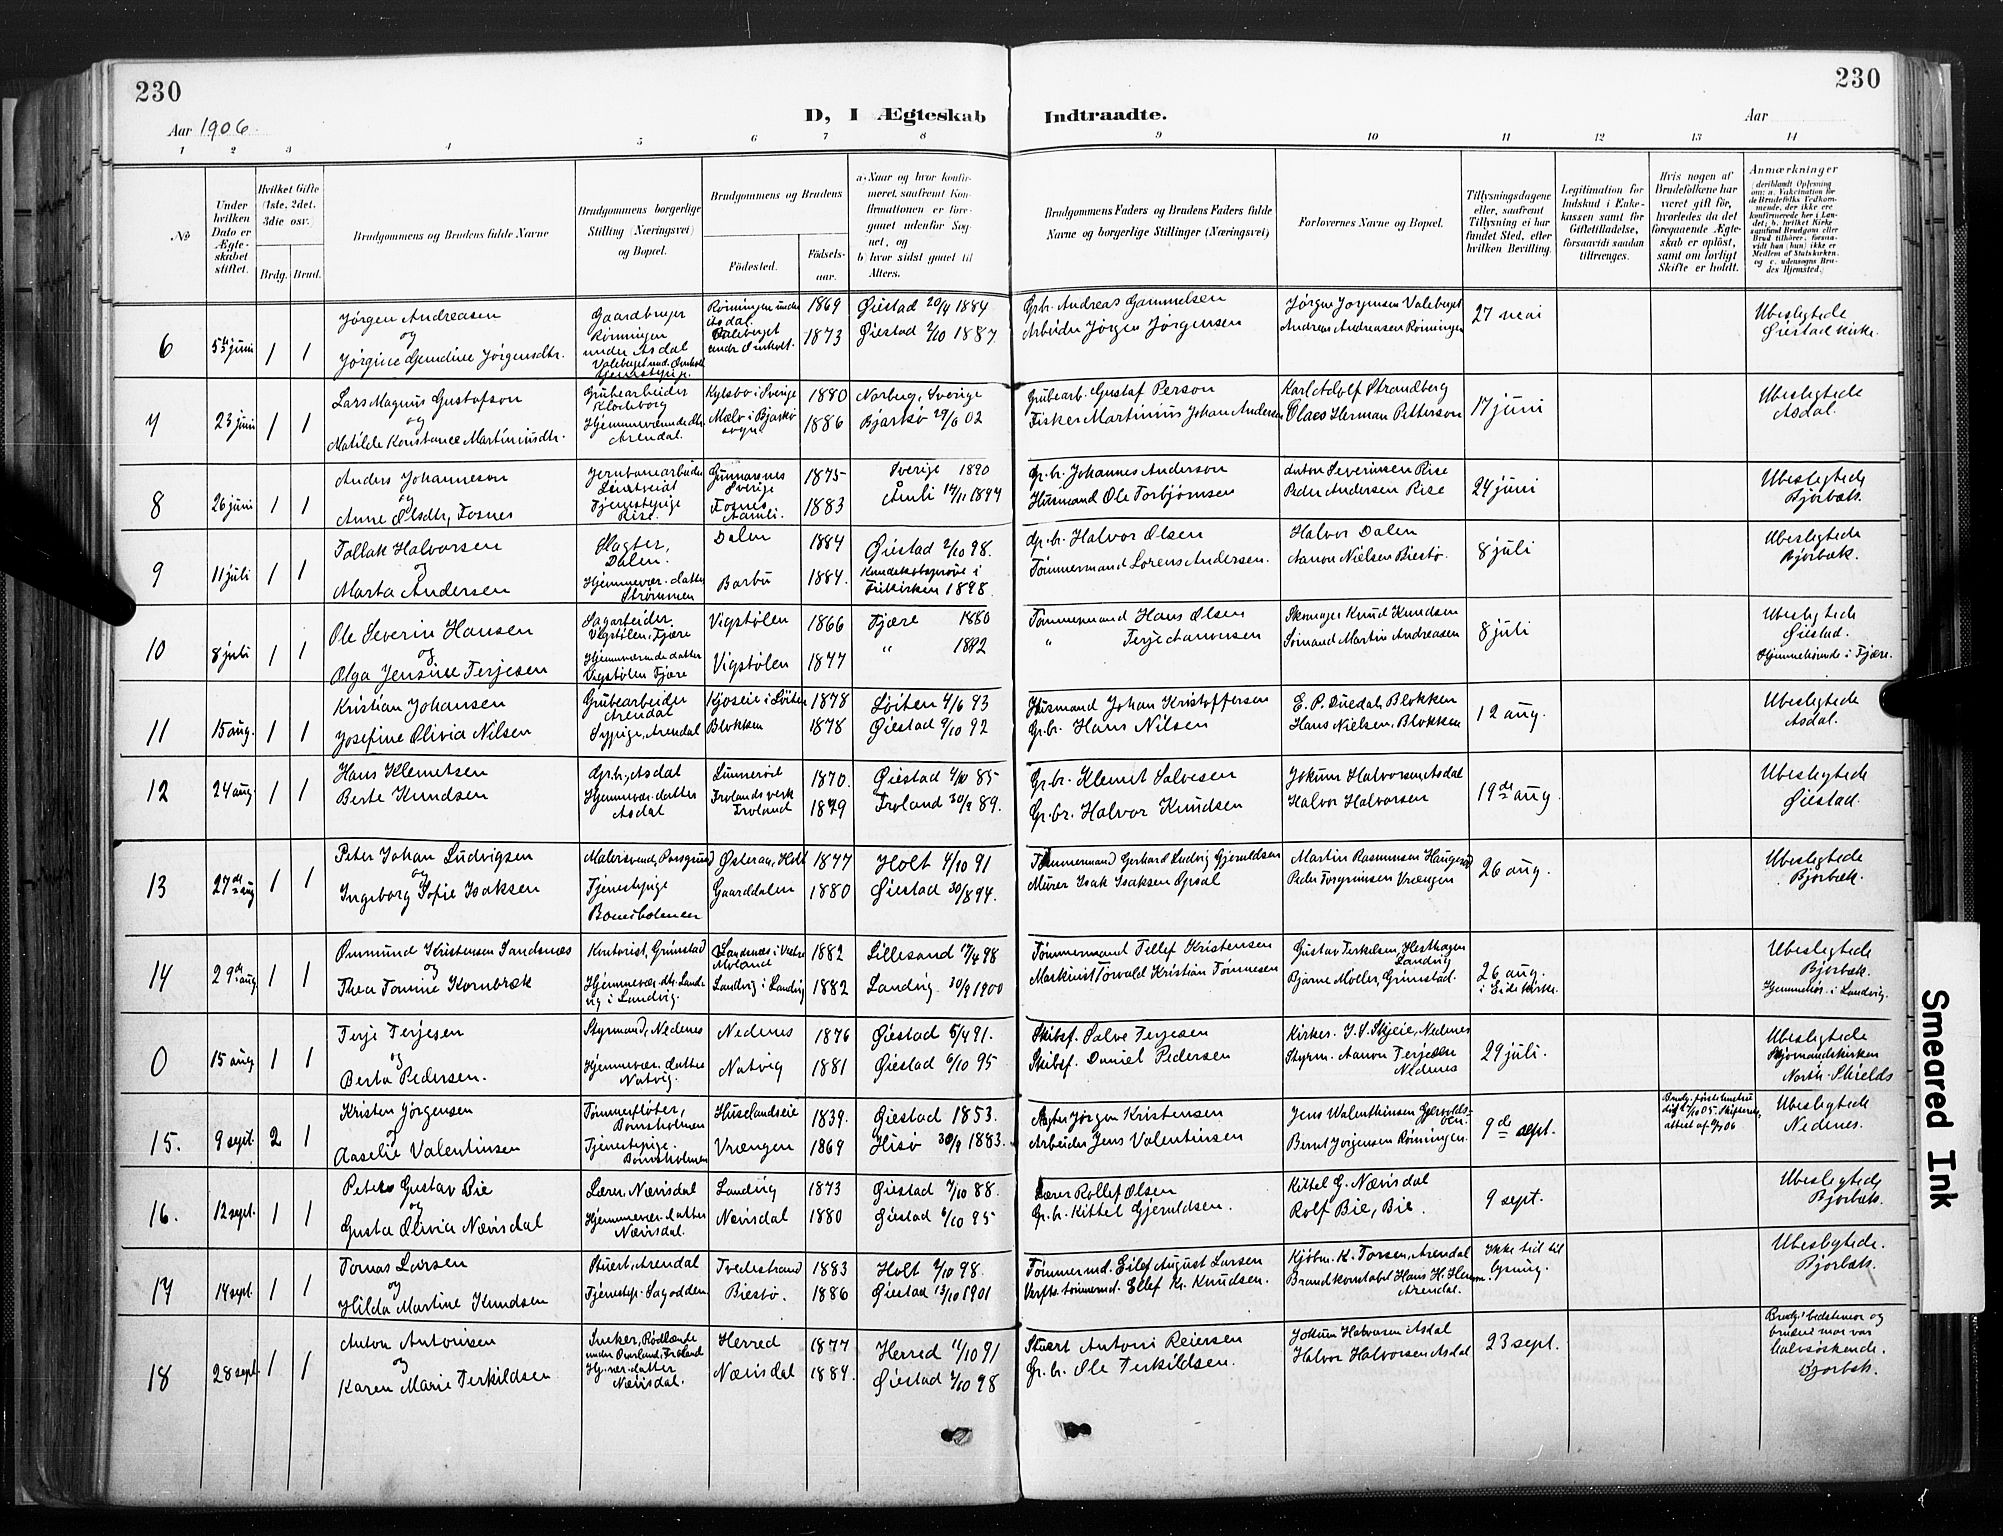 230
230
D, I Ægteskab Indtraadte.
Aar 1906.
Aar
1 2 3 4 5 6 7 8 9 10 11 12 13 14
№
Under hvilken Dato er Ægteskabet stiftet.
Hvilket Gifte (1ste, 2det, 3die osv.)
Brdg. Brud.
Brudgommens og Brudens fulde Navne
Brudgommens borgerlige Stilling (Næringsvei) og Bopæl.
Brudgommens og Brudens
Fødested.
Fødselsaar.
a. Naar og hvor konfirmeret, saafremt Konfirmationen er foregaaet udenfor Sognet, og
b. hvor sidst gaaet til Alters.
Brudgommens Faders og Brudens Faders fulde Navne og borgerlige Stillinger (Næringsvei)
Forlovernes Navne og Bopæl.
Tillysningsdagene eller, saafremt Tillysning ei har fundet Sted, efter hvilken Bevilling.
Legitimation for Indskud i Enkekassen samt for Giftetilladelse, forsaavidt saadan tiltrænges.
Hvis nogen af Brudefolkene har været gift før, hvorledes da det foregaaende Ægteskab er opløst, samt om lovligt Skifte er holdt.
Anmærkninger
6 5te juni 1 1
Jørgen Andreasen
og
Jørgine Gundine Jørgensdtr.
Gaardbruger
Rønningen
under Asdal
Rønningen under
Asdal
1869 Øiestad 20/4 1884
1873 Øiestad 2/10 1887.
Gbr. Andreas Gammelsen
Arbeider Jørgen Jørgensen
Jørgen Jørgensen Valebuget
Andreas Andreasen Rønningen
27 mai
Ubeslegtede
Øiestad kirke.
7 23 juni 1 1
Lars Magnus Gustafson
og
Matilde Konstance Martiniusdtr.
Grubearbeider
Klodeborg
Hjemmeværende dtr.
Arendal.
Kylsbo i Sverige 1880 Norberg, Sverige
Mælo i Bjarkø
sogn 1886 Bjarkø 29/6 02
Grubearb. Gustaf Person
Fisker Martinius Johan Andersen
Karl Adolf Strandberg
Olaes Herman Petterson
17 juni
Ubeslegtede
Asdal.
8 26 juni 1 1
Anders Johanneson
og
Anne Olsdtr, Fosnes
Jernbanearbeider
Tjenestepige
Rise.
Gunnarsnes
Sverige
Fosnes
Aamli.
1875 Sverige 1890
1883 Åmli 14/11 1897
Gr.br. Johannes Anderson
Husmand Ole Torbjørnsen
Anton Severinsen Rise
Peder Andersen Rise
24 juni
Ubeslegtede
Bjorbæk.
9 11 juli 1 1
Tallak Halvorsen
og
Marta Andersen
Slagter,
Dalen.
Hjemmevær. datter
Strømmen
Dalen 1884 Øiestad 2/10 98.
Barbu 1884. Kundskabsprøve i
Frikirken 1898.
Gr.br. Halvor Olsen
Tømmermand Lorens Andersen.
Halvor Dalen
Aanon Nielsen Biestø.
8 juli
Ubeslegtede
Bjorbæk.
10 8 juli 1 1
Ole Severin Hansen
og
Olga Jensine Terjesen
Sagarbeider
Vigstølen, Fjære
Hjemmeværende datter
Vigstølen Fjære
Vigstølen 1866 Fjære 1880
Vigstølen 1877 " 1892
Tømmermand Hans Olsen
" Terje Aanonsen
Skomager Knud Knudsen
Sømand Martin Andreasen
8 juli
Ubeslegtede
Øiestad.
Hjemmehørende i Fjære.
11 15 aug. 1 1
Kristian Johansen
Josefine Olivia Nilsen
Grubearbeider
Arendal
Sypige, Arendal
Kjoseie i Løiten 1878 Løiten 4/6 93
Blokken 1878 Øiestad 9/10 92
Husmand Johan Kristoffersen
Gr.br. Hans Nilsen
E. P. Duedal, Blokken
Hans Nielsen, Blokken
12 aug.
Ubeslegtede
Asdal.
12 24 aug 1 1
Hans Klemetsen
Berte Knudsen
Gr.br., Asdal
Hjemmevær. datter
Asdal
1870. Øiestad 4/10 85
Frolands verk
Froland 1879 Froland 30/9 89.
Gr.br. Klemet Salvesen
Gr.br. Halvor Knudsen
Jokum Halvorsen Asdal
Halvor Halvorsen
19de aug.
Ubeslegtede
Øiestad.
13 27de aug 1 1
Peter Johan Ludvigsen
og
Ingeborg Sofie Isaksen
Malersvend, Porsgrund
Tjenestepige
Østeraa, Holt 1877 Holt 4/10 91
Gaarddalen 1880 Øiestad 30/8 94.
Tømmermand Gerhard Ludvig Gjeruldsen
Murer Isak Isaksen Øgsal
Martin Rasmussen Haugerød
Peder Torgrimsen Vrængen
26 aug.
Ubeslegtede
Bjorbæk.
14 29de aug 1 1
Omund Kristensen Sandsnæs
og
Thea Tomine Kornbræk
Kontorist, Grimstad
Hjemmevær. dtr. Landvig i Landvig.
Sandnæs i Vestre
Moland 1882 Lillesand 17/4 98
Landvig i Landvig 1882 Landvig 30/9 1900
Tømmermand Tellef Kristensen
Maskinist Torvald Kristian Tønnesen
Gustav Terkelsen, Hesthagen
Landvig
Bjarne Møller, Grimstad.
26 aug.
i Eide kirke.
Ubeslegtede
Bjorbæk.
Hjemmehør. i Landvig.
0 15 aug 1 1
Terje Terjesen
og
Berta Pedersen.
Styrmand, Nedenes
Hjemmevær. datter
Natvig.
Nedenes 1876 Øiestad 5/4 91.
Natvig 1881 Øiestad 6/10 95
Skibsf. Salve Terjesen
Skibsf. Daniel Pedersen
Kirkes. J. S. Skjeie, Nedenes
Styrm. Aanon Terjesen
Nedenes
29 juli.
Ubeslegtede
Sjømandskirken
North-Shields
15. 9 sept. 2 1
Kristen Jørgensen
og
Aaselie Valentinsen
Tømmerfløter,
Bomsholmen
Tjenestepige.
Bomsholmen
Huselandseie 1839. Øiestad 1853.
Vrængen 1869 Hisø 30/9 1883.
Jørgen Kristensen
Arbeider Jens Valentinsen
Jens Walenthinsen
Bernt Jørgensen Rønningen.
9de sept.
Ubeslegtede
Nedenes.
16. 12 sept. 1 1
Peter Gustav Bie
og
Gusta Olivia Nævisdal
Lærer, Nævisdal
Hjemmevær. datter
Nævisdal.
Landvig 1873 Øiestad 7/10 88.
Nævisdal 1880 Øiestad 6/10 95
Lærer Rollef Olsen
Gr.br. Kittel Gjeruldsen.
Kittel G. Nævisdal
Rolf Bie, Bie.
9 sept.
Ubeslegtede
Bjorbæk.
17 14 sept. 1 1
Tomas Larsen
og
Hilda Martine Knudsen
Stuert, Arendal
Tjenestep. Sagodden
Tvedestrand 1883 Holt 2/10 98.
Biestø. 1886 Øiestad 13/10 1901
Tømmermd. Eilef August Larsen
Verfts tømmermd. Ellef Kr. Knudsen.
Kjøbm. K. Torsen, Arendal
Brandkonstabel Hans H.
Arendal.
Ikke tid til
lysning.
Ubeslegtede.
Bjorbæk.
18 28 sept. 1 1
Anton Antonisen
og
Karen Marie Terkildsen
Hj. vær. datter
Nævisdal.
Herred 1877 Herred 11/10 91
Nævisdal 1884. Øiestad 2/10 98
Stuert Antoni Reiersen
Gr.br. Ole Terkildsen.
Jokum Halvorsen Asdal
Halvor Halvorsen Asdal
23 sept.
Brudg.s bedstemor og
brudens mor var
halvsøskende.
Bjorbæk.
Smeared Ink